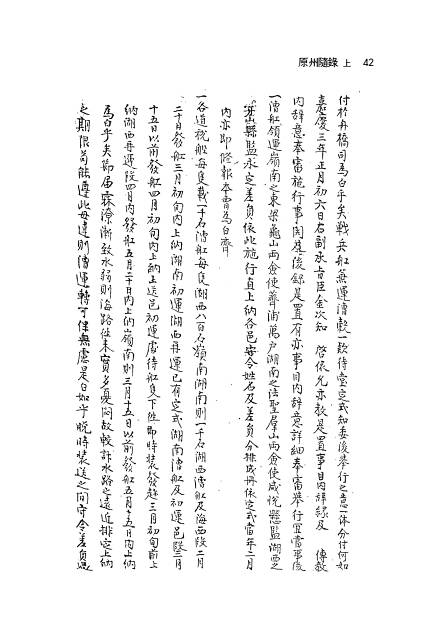 原州隨錄 上 42
付於舟橋司爲白乎矣戰兵船兼運漕穀一款待登定式知委後擧行之意一体分付何如
嘉慶三年正月初六日右副承旨臣金次知 啓依允亦敎是置事目內辞緣及 傳敎
內辞意奉審施行事関是後錄是置有亦事目內辞意詳細奉審擧行宜當事後
一漕船領運嶺南之東梁龜山両僉使薺浦萬戶湖南之法聖羣山両僉使咸悅縣監湖西之
牙山縣監永定差員依此施行直上納各邑守令姓名及差員分排成冊依定式當年二月
內亦即修報本曹爲白齊
一各道稅船每隻載一千石漕船每隻湖西八百石嶺南湖南則一千石湖西漕船及海西段二月
二十日發船三月初旬內上納湖南初運湖西再運已有定式湖南漕船及初運邑段三月
十五日以前發船四月初旬內上納上送邑初運處待船隻下陸即時裝發趁三月初旬前上
納湖西再運段四月內發船五月二十日內上納嶺南則三月十五日以前發船五月十五日內上納
爲白乎矣節届霖潦漸致水弱則海路往來實多憂悶故較計水路之遠近排定上納
之期限苟能遵此毋違則漕運轉可保無慮是白如乎脫時裝送之間守令差員